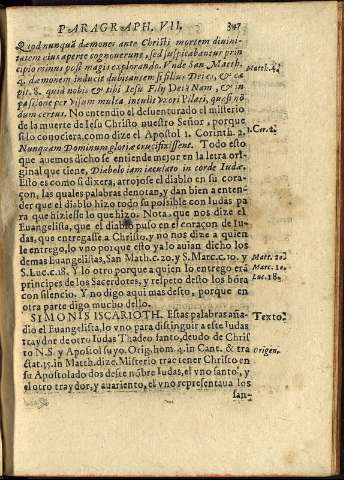 PARAGRAPH. VII. 347
Quod nunquā dæmones ante Christi mortem divini-
tatem eius aperte cognouerunt, sed suspicabantur prin
cipio minus post magis explorando. Vnde San Matth.
4. dæmonem inducit dubitantem si filius Dei es, & ca Matth. 4.
pit. 8. quid nobis & tibi Iesu Fily Dei? Nam, & in
passione per visum multa intulit vxori Pilati, quasi nō
dum certus. No entendio el desuenturado el misterio
de la muerte de Iesu Christo nuestro Señor, porque
si lo conociera, como dize el Apostol 1. Corinth. 2. 1. Cor. 2.
Nunquam Dominum gloriæ crucifixissent. Todo esto
que auemos dicho se entiende mejor en la letra ori-
ginal que tiene, Diabolo iam iaculato in corde Iudæ.
Esto es como si dixera, arrojose el diablo en su cora-
çon, las quales palabras denotan, y dan bien a enten-
der que el diablo hizo todo su posible con Iudas pa
ra que hiziesse lo que hizo. Nota, que nos dize el
Euangelista, que el diablo puso en el coraçon de Iu-
das, que entregasse a Christo, y no nos dize a quien
le entrego, lo vno porque esto ya lo auian dicho los
demas Euangelistas, San Math. c. 20. y S. Marc. c. 10. y Matt. 20
S. Luc. c. 18. Y lo otro porque a quien lo entrego era Marc. 10.
principes de los Sacerdotes, y respeto desto los hōra Luc. 18.
con silencio. Y no digo aqui mas desto, porque en
otra parte digo mucho dello.
SIMONIS ISCARIOTH. Estas palabras aña- Texto.
dio el Euangelista, lo vno para distinguir a este Iudas
traydor de otro Iudas Thadeo santo, deudo de Chris
to N.S. y Apostol suyo. Orig. hom. 4. in Cant. & tra Origen.
ctat. 35. in Matth. dize. Misterio trae tener Christo en
su Apostolado dos deste nōbre Iudas, el vno santo, y
el otro traydor, y auariento, el vno representaua los
san-